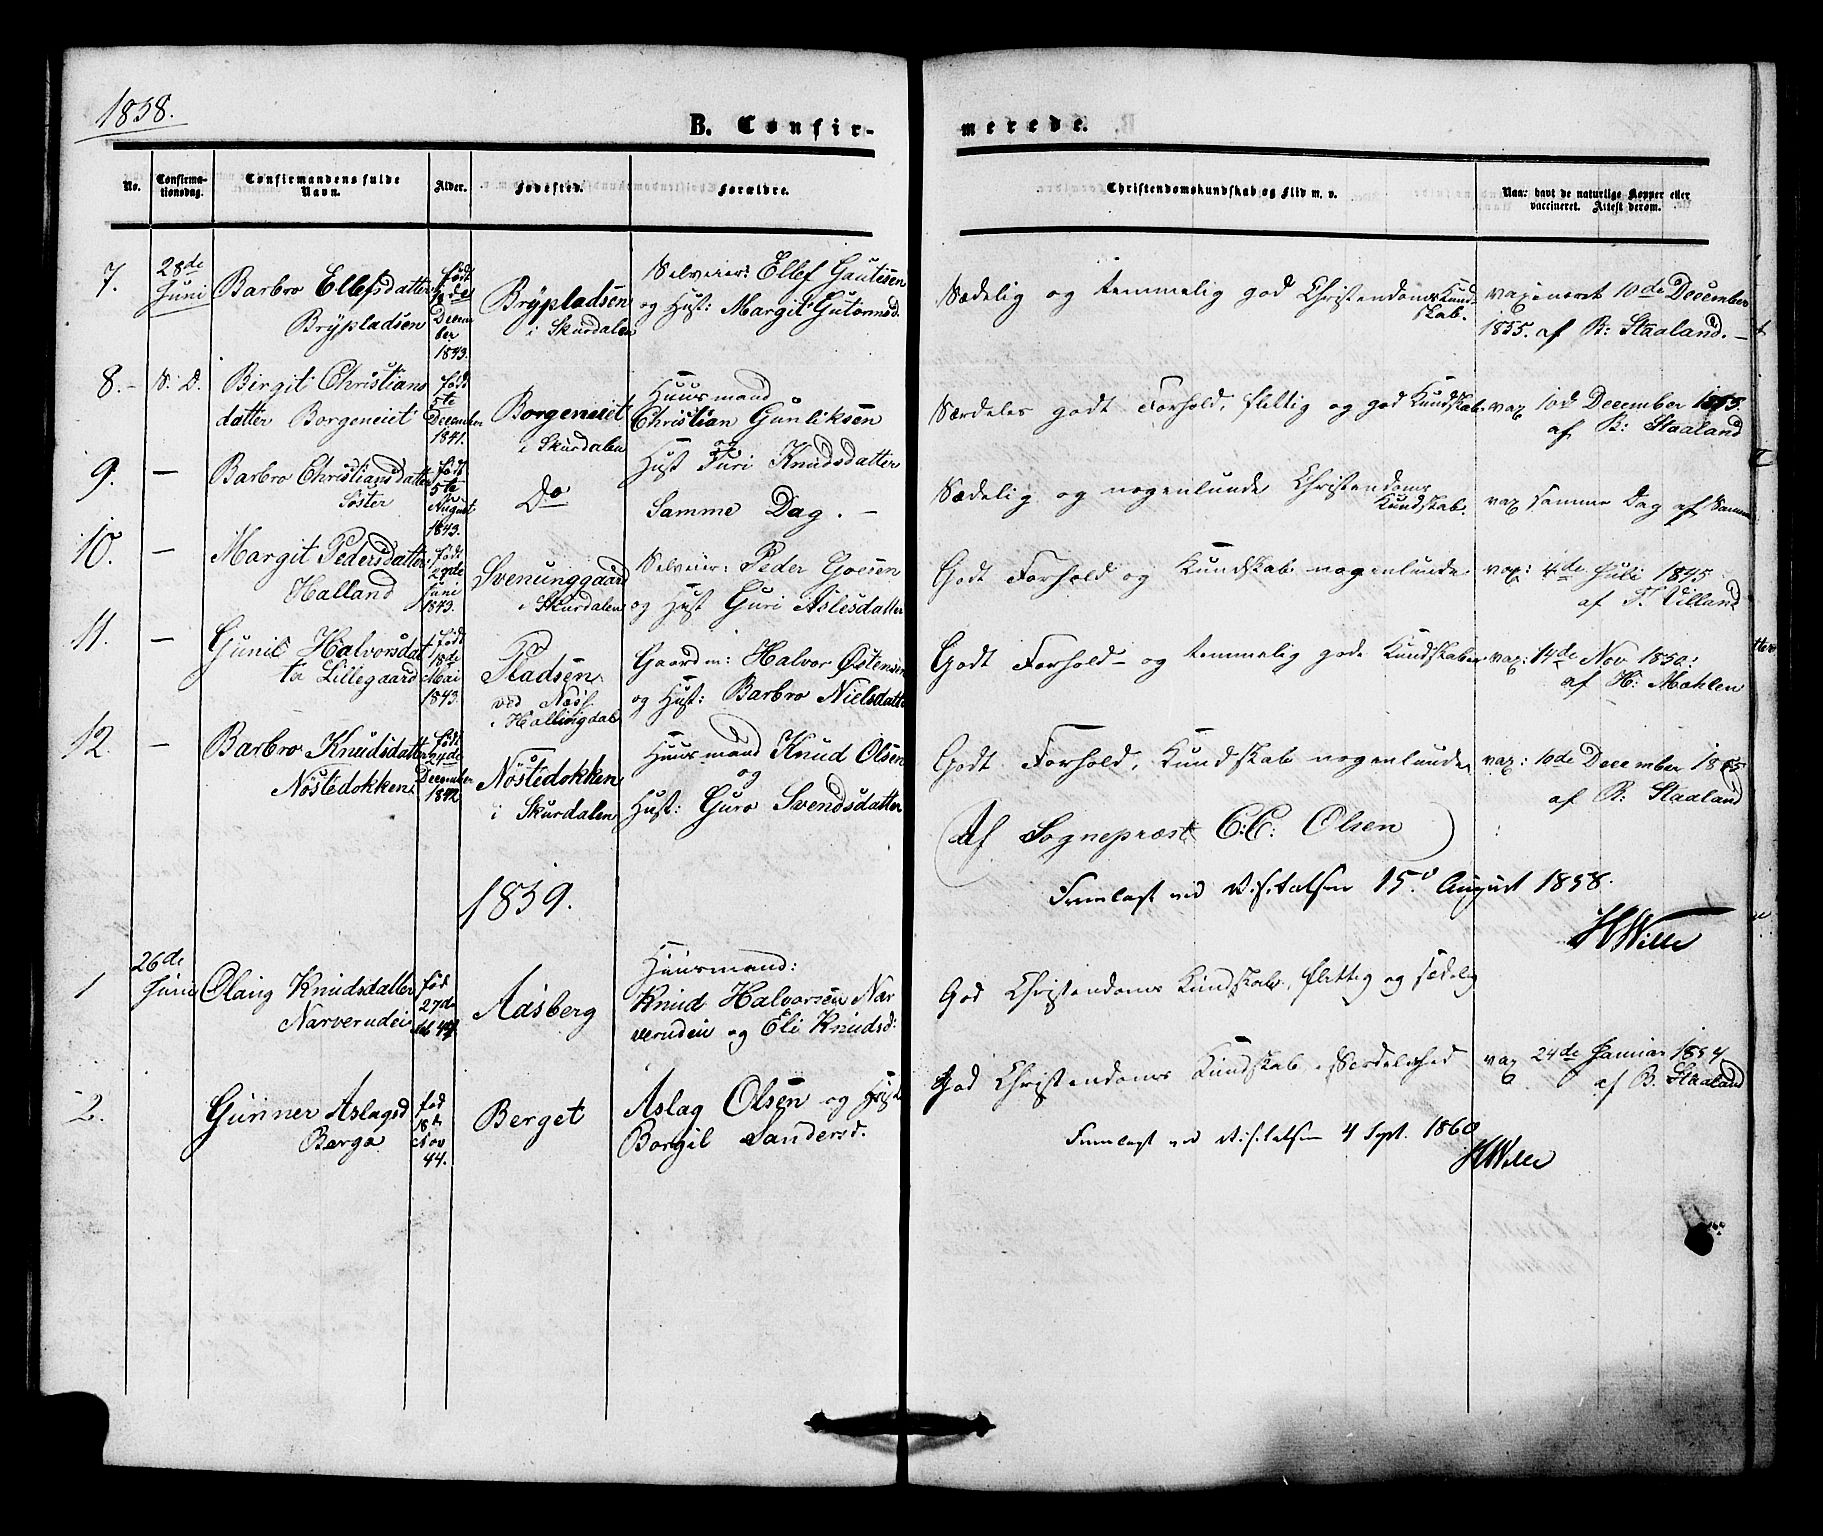 1858.
B. Confir-
merede.
No.
Confirma-
tionsdag.
Confirmandens fulde
Navn.
Alder.
Fødested.
Forældre.
Christendomskundskab og Flid m. v.
Naar havt de naturlige Kopper eller
vaccineret. Attest derom.
7.
28de
Juni
Barbro Ellefsdatter
Brÿpladsen
født
Decem
ber
1843.
Brÿpladsen
i Skurdalen
Selveier: Ellef Gautesen
og Hust: Margit Gutormsd.
Sædelig og temmelig god Christendoms Kund
skab.
vaxineret 10de December
1855. af B: Staaland. —
8. -
S. D.
Birgit Christians
datter Borgeneiet
født
5te
December
1841.
Borgeneiet
i Skurdalen
Huusmand
Christian Gunliksen
og
Hust Turi Knudsdatter
Særdeles godt Forhold, flittig og god Kundskab.
vax 10de December 1855.
af B: Staaland
9.
—
Barbro Christiansdatter
Søster
født
5te
August
1843.
Do
Samme Dag. —
Sædelig og nogenlunde Christendoms
Kundskab.
vax samme Dag af Samme
10.
—
Margit Pedersdatter
Halland
født
29de
Juni
1843.
Svenunggaard
i Skurdalen
Selveier: Peder Goesen
og Hust Guri Aslesdatter
Godt Forhold og Kundskab nogenlunde
vax: 4de Juli 1845
af T. Villand
11.
—
Gunil Halvorsdat
ter Lillegaard
født
18de
Mai
1843.
Pladsen
ved Næsf
i Hallingdal
Gaardm: Halvor Østensen
og Hust: Barbro Nielsdatter
Godt Forhold - og temmelig gode Kundskaber
vax: 14de Nov 1850.
af H: Mæhlen
12.
—
Barbro Knudsdatter
Nøstedokken
født
24de
December
1842
Nøstedokken
i Skurdalen
Huusmand Knud Olsen
og
Hust: Guro Svendsdatter
Godt Forhold, Kundskab nogenlunde
vax: 10de December 1855
af B: Staaland
(Af Sognepræst C: C: Olsen)
Fremlagt ved Visitatsen 15. August 1858.
HWille
1859.
1
26de
Juni
Olaug Knudsdatter
Narverudei
fød
27de
44
Aasberg
Huusmand:
Knud Halvorsen Nar
verudeie og Eli Knudsd:
God Christendoms Kundskab, flittig og sædelig
2.
Gunner Aslagsd
Berga
fød
18de
Nov
44.
Berget
Aslag Olsen og Hust
Borgil Sandersd.
God Christendoms Kundskab, Sædelighed
vax 24de Januar 1854
af B. Staaland
Fremlagt ved Visitatsen 4 Sept. 1860
HWille